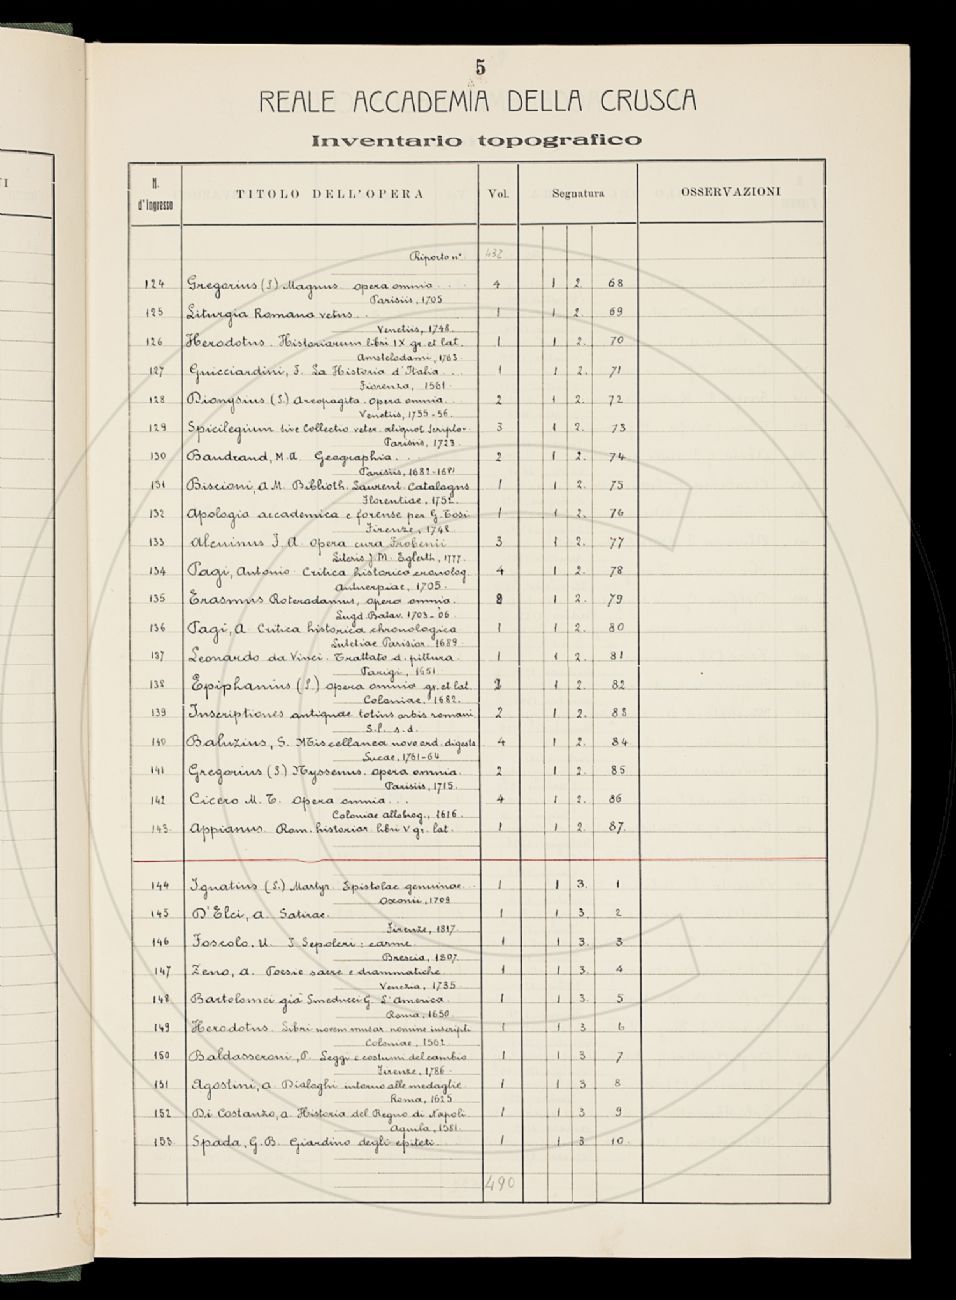 5
REALE ACCADEMIA DELLA CRUSCA
Inventario topografico
N. d'Ingresso TITOLO DELL'OPERA Vol. Segnatura OSSERVAZIONI
Riporto n° 432
124 Gregorius (S) Magnus opera omnia . . 4 1 2. 68
Parisiis, 1705
125 Liturgia Romana vetus . . 1 1 2. 69
Venetiis, 1748.
126 Herodotus. Historiarum libri IX gr. et lat. 1 1 2. 70
Amstelodami, 1763
127 Guicciardini, F. La Historia d'Italia . . . 1 1 2. 71
Fiorenza, 1561.
128 Dionysius (S.) Areopagita. Opera omnia. . 2 1 2. 72
Venetiis, 1755-56.
129 Spicilegium sive Collectio veter. aliquot Scripto- 3 1 2. 73
Parisiis, 1723.
130 Baudrand, M. A. Geographia . . . 2 1 2. 74
Parisiis, 1682-1681
131 Biscioni, A. M. Biblioth. Laurent. Catalogus 1 1 2. 75
Florentiae, 1752.
132 Apologia accademica e forense per G. Tosi 1 1 2. 76
Firenze, 1748
133 Alcuinus J. A. Opera cura Frobenii 3 1 2. 77
Literis J. M. Eglerth, 1777.
134 Pagi, Antonio. Critica historico cronolog. 4 1 2. 78
Antuerpiae, 1705.
135 Erasmus Roterodamus, opera omnia. 8 1 2. 79
Lugd. Batav. 1703-'06
136 Pagi, A. Critica historica chronologica 1 1 2. 80
Lutetiae Parisior. 1689
137 Leonardo da Vinci. Trattato d. pittura. 1 1 2. 81
Parigi, 1651
138 Epiphanius (S.) opera omnia gr. et lat. 2 1 2. 82
Coloniae, 1682.
139 Inscriptiones antiquae totius orbis romani 2 1 2. 83
S. l. s. d.
140 Baluzius, S. Miscellanea novo ord. digesta 4 1 2. 84
Lucae, 1761-64
141 Gregorius (S) Nyssenus. opera omnia. 2 1 2. 85
Parisiis, 1715.
142 Cicero M. T. Opera omnia . . . 4 1 2. 86
Coloniae allobrog., 1616.
143. Appianus. Rom. historiar. libri V gr. lat. 1 1 2. 87.
144 Ignatius (S.) Martyr. Epistolae genuinae . . 1 1 3. 1
Oxonii, 1709
145 D'Elci, A. Satirae. 1 1 3. 2
Firenze, 1817
146 Foscolo, U. I Sepolcri: carme. 1 1 3. 3
Brescia, 1807.
147 Zeno, A. Poesie sacre e drammatiche. 1 1 3. 4
Venezia, 1735
148 Bartolomei già Smeducci G. L'America. 1 1 3. 5
Roma, 1650.
149 Herodotus. Libri novem musar. nomine inscripti. 1 1 3 6
Coloniae, 1562
150 Baldasseroni, P. Leggi e costumi del cambio 1 1 3 7
Firenze, 1786.
151 Agostini, A. Dialoghi intorno alle medaglie 1 1 3 8
Roma, 1625
152 Di Costanzo, A. Historia del Regno di Napoli 1 1 3 9
Aquila, 1581.
153 Spada, G. B. Giardino degli epiteti. 1 1 3 10.
490